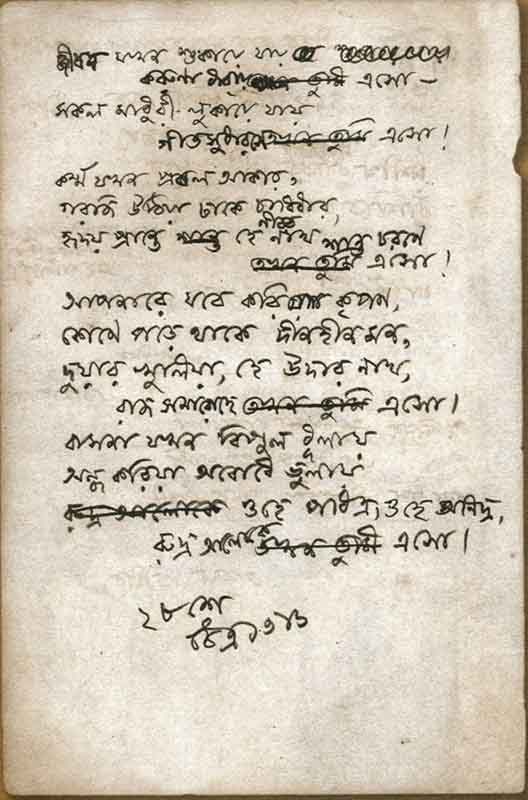 জীবন যখন শুকায়ে যায়
করুণা ধারায় এসো –
সকল মাধুরী লুকায়ে যায়
গীতসুধারসে এসো!
কর্ম্ম যখন প্রবল আকার,
গরজি উঠিয়া ঢাকে চারিধার,
হৃদয় প্রান্তে হে নীরব নাথ শান্ত চরণে
এসো!
আপনারে যবে করিয়া কৃপণ,
কোণে পড়ে থাকে দীনহীন মন,
দুয়ার খুলিয়া, হে উদার নাথ,
রাজ সমারোহে এসো।
বাসনা যখন বিপুল ধূলায়
অন্ধ করিয়া অবোধে ভুলায়
ওহে পবিত্র, ওহে অনিদ্র,
রুদ্র আলোকে এসো।
২৮শে
চৈত্র ১৩১৬